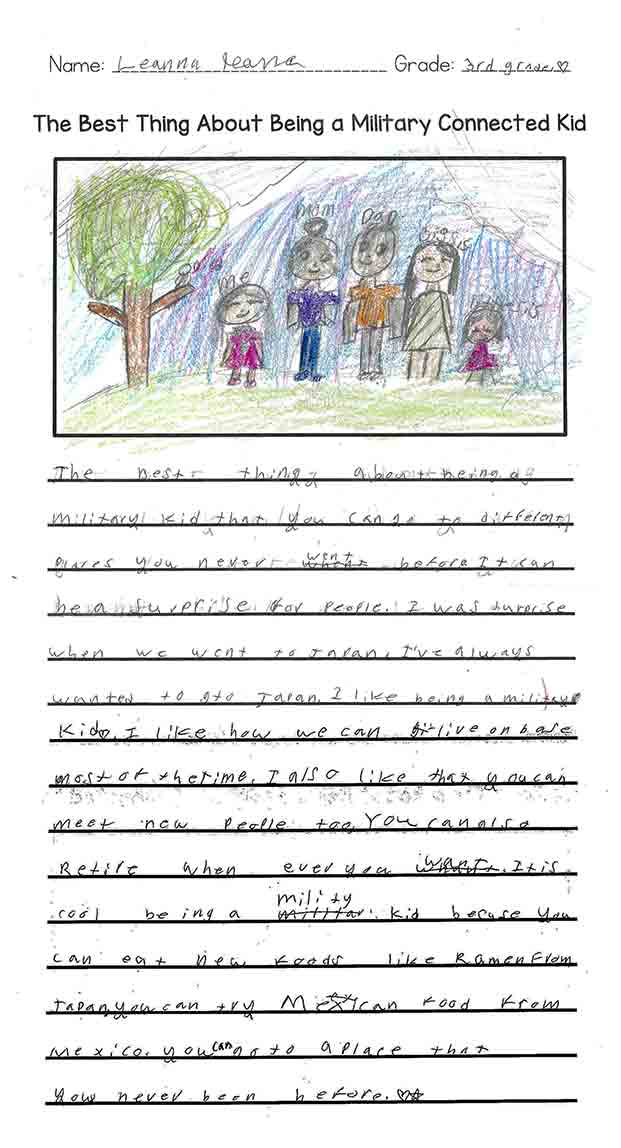 Name: Leanna Grade: 3rd grade♡
The Best Thing About Being a Military Connected Kid
Mom Dad Big Sis
me
The best thing about being a
military kid that you can go to different
places you never went before It can
be a surprise for people. I was surprise
when we went to Japan, I've always
wanted to go to Japan. I like being a military
Kid. I like how we can live on base
most of the time. I also like that you can
meet new people too, You can also
Retire when ever you want. It is
cool being a mility kid becuse you
can eat new foods like Ramen From
Japan, you can try Mexican food from
mexico. you can go to a place that
you never been before. ♡☆